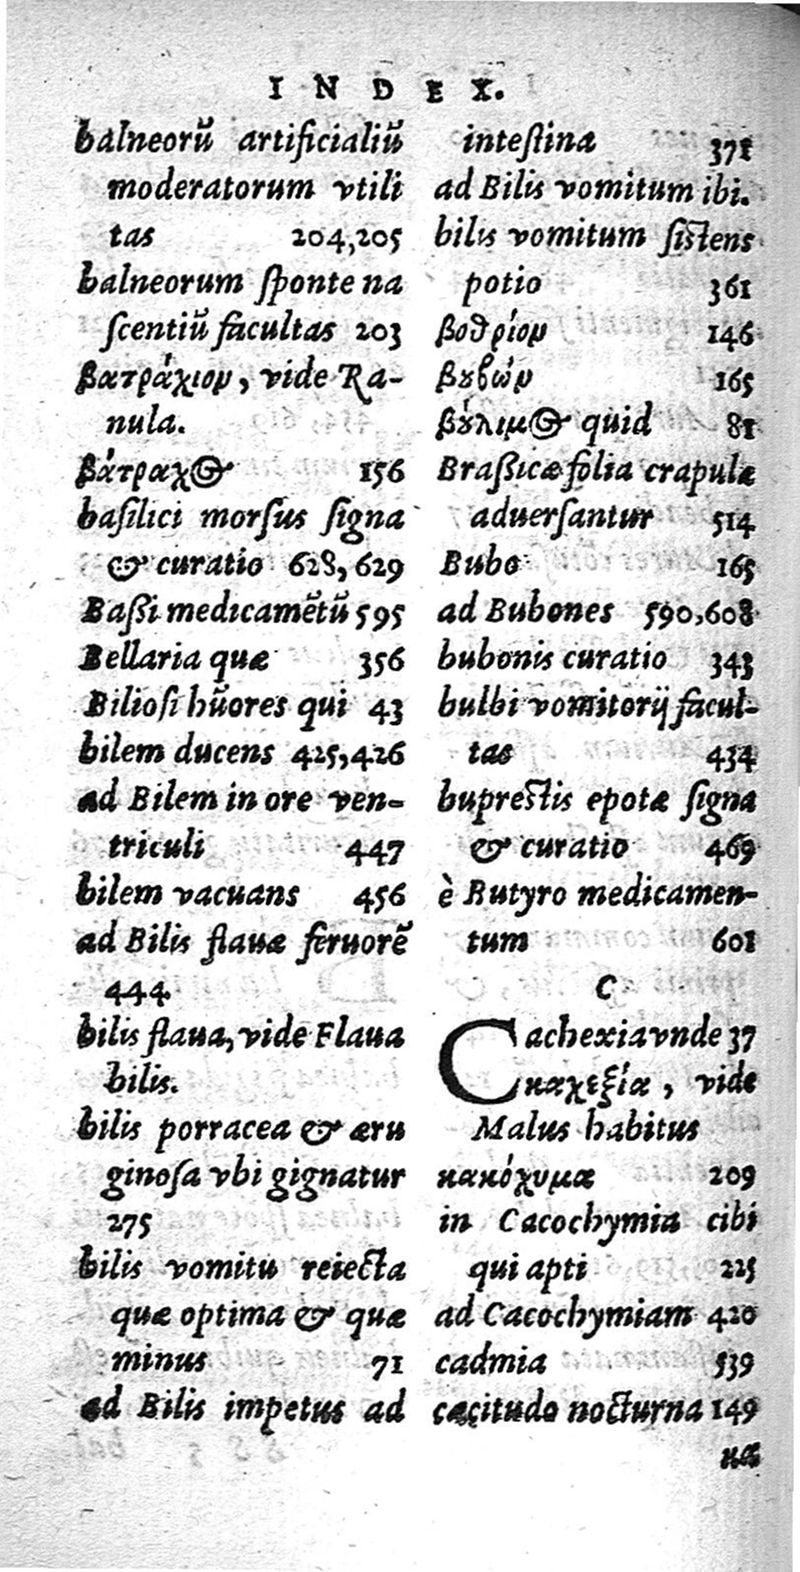 INDEX.
balneorū artificialiū
moderatorum vtili
tas 204,205
balneorum ſponte na
ſcentiū facultas 203
βατράχιον, vide Ra-
nula.
βάτραχος 156
baſilici morſus ſigna
& curatio 628,629
Baſſi medicamētū 595
Bellaria quæ 356
Bilioſi hūores qui 43
bilem ducens 425,426
ad Bilem in ore ven-
triculi 447
bilem vacuans 456
ad Bilis flauæ feruorē
444
bilis flaua, vide Flaua
bilis.
bilis porracea & æru
ginoſa vbi gignatur
275
bilis vomitu reiecta
quæ optima & quæ
minus 71
ad Bilis impetus ad
inteſtina 371
ad Bilis vomitum ibi.
bilis vomitum ſiſtens
potio 361
βοθρίον 146
βουβών 165
βούλιμος quid 81
Braſſicæ folia crapulæ
aduerſantur 514
Bubo 165
ad Bubones 590,608
bubonis curatio 343
bulbi vomitorij facul-
tas 434
bupreſtis epotæ ſigna
& curatio 469
è Butyro medicamen-
tum 601
C
Cachexia vnde 37
καχεξία, vide
Malus habitus
κακόχυμα 209
in Cacochymia cibi
qui apti 225
ad Cacochymiam 420
cadmia 539
cæcitudo nocturna 149
κα